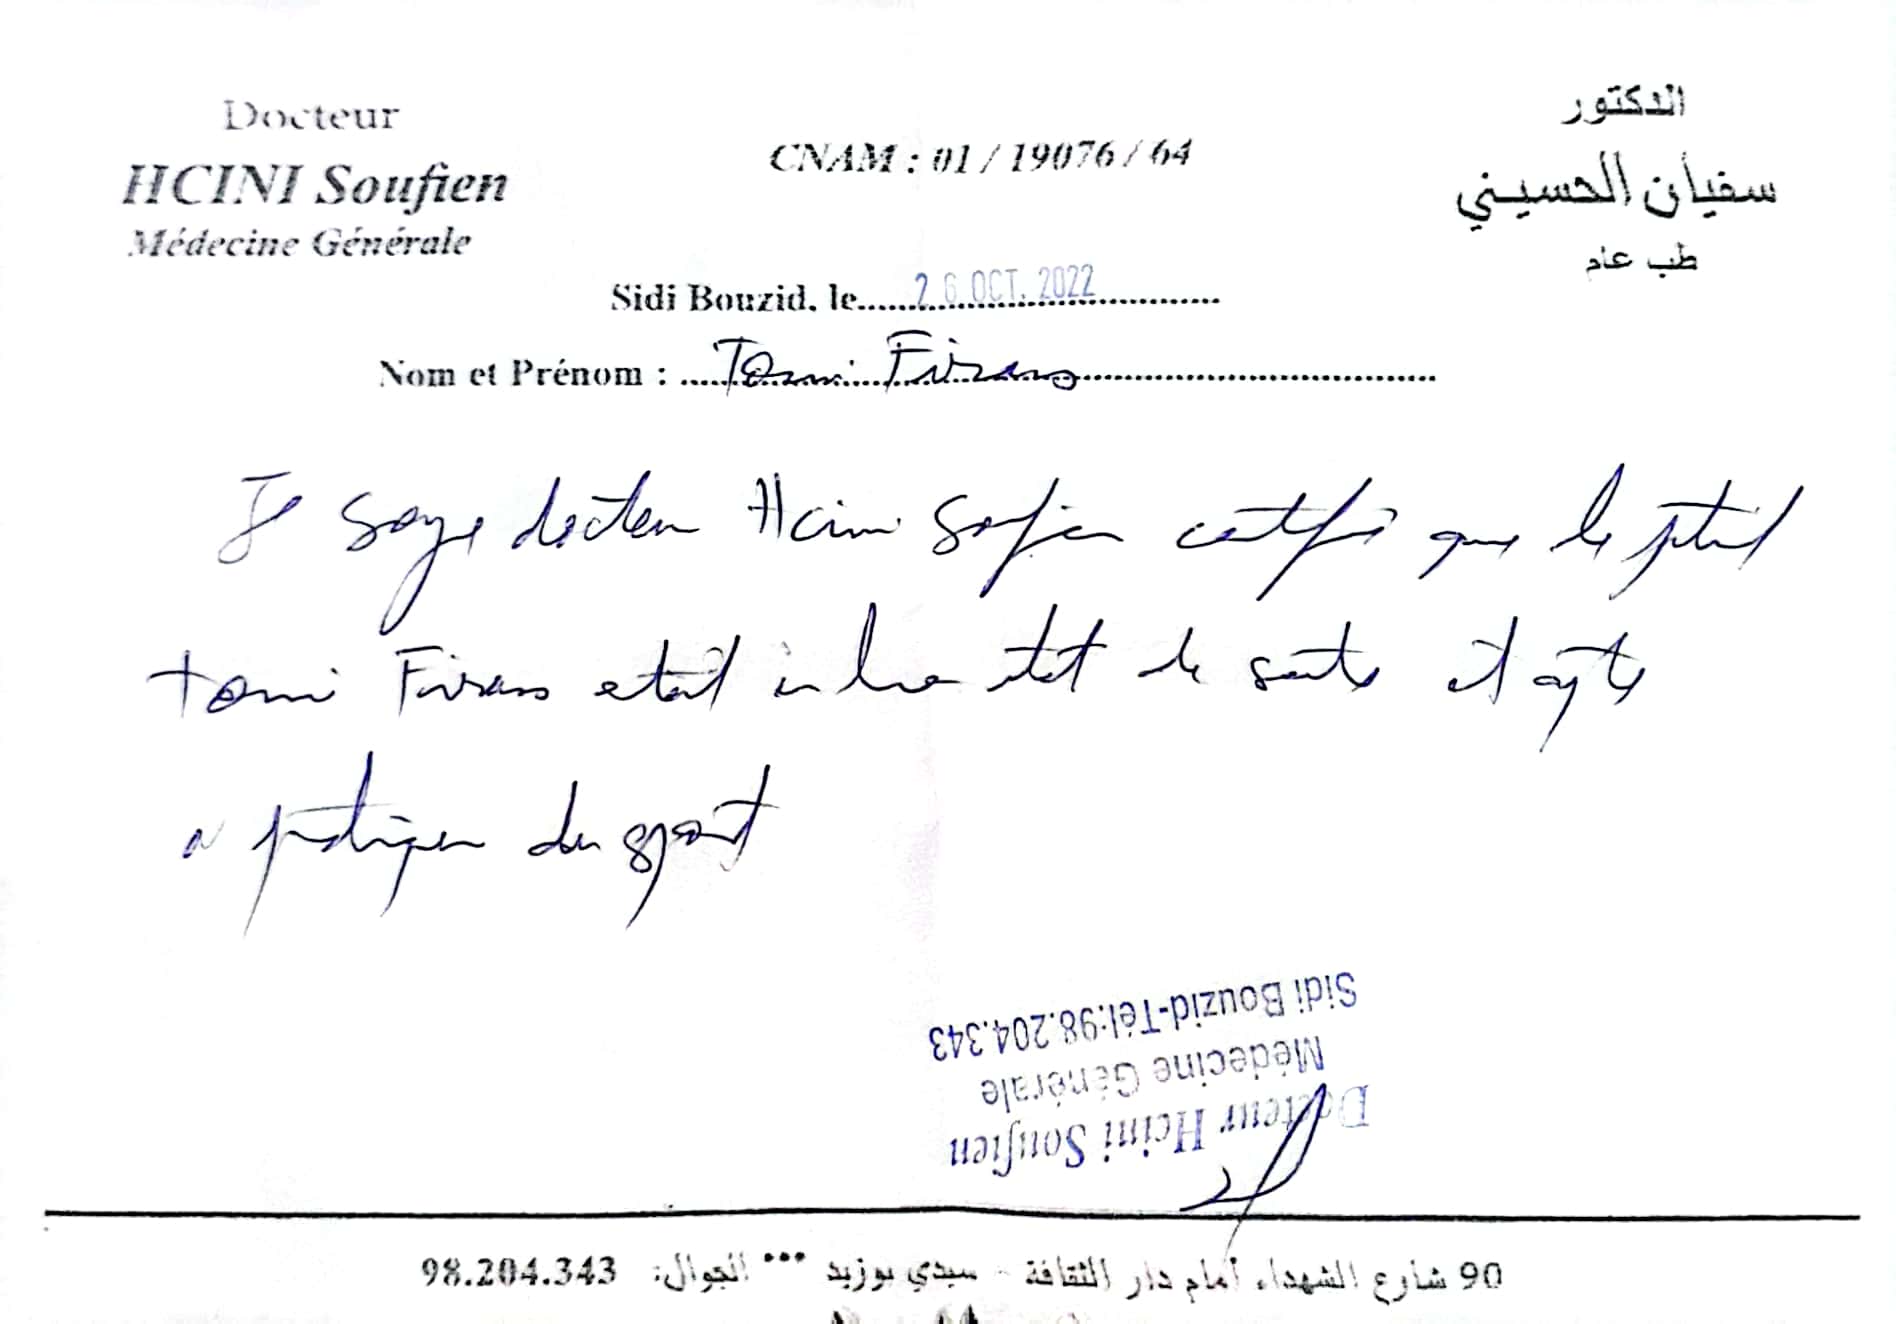 Docteur
HCINI Soufien
Médecine Générale
CNAM : 01 / 19076 / 64
الدكتور
سفيان الحسيني
طب عام
Sidi Bouzid, le 26 OCT. 2022
Nom et Prénom : Tomi Firas
Je soye docteur Hcini Sofien certifie que le
Tomi Firas etait en bon etat de sante et apte
a pratiquer du sport
Sidi Bouzid-Tél:98.204.343
Médecine Générale
Docteur Hcini Soufien
90 شارع الشهداء أمام دار الثقافة - سيدي بوزيد *** الجوال: 98.204.343